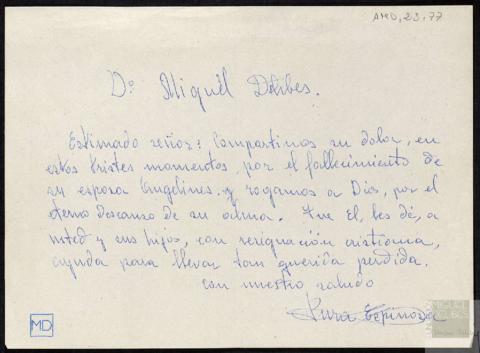 AMD, 23, 77
Dº Miguel Delibes.
Estimado señor: Compartimos su dolor, en
estos tristes momentos, por el fallecimiento de
su esposa Angelines. y rogamos a Dios, por el
eterno descanso de su alma. Que El, les dé, a
usted y sus hijos, con resignación cristiana,
ayuda para llevar tan querida perdida.
con nuestro saludo
Pura Espinoza
MD
MIGUEL
DELIBES